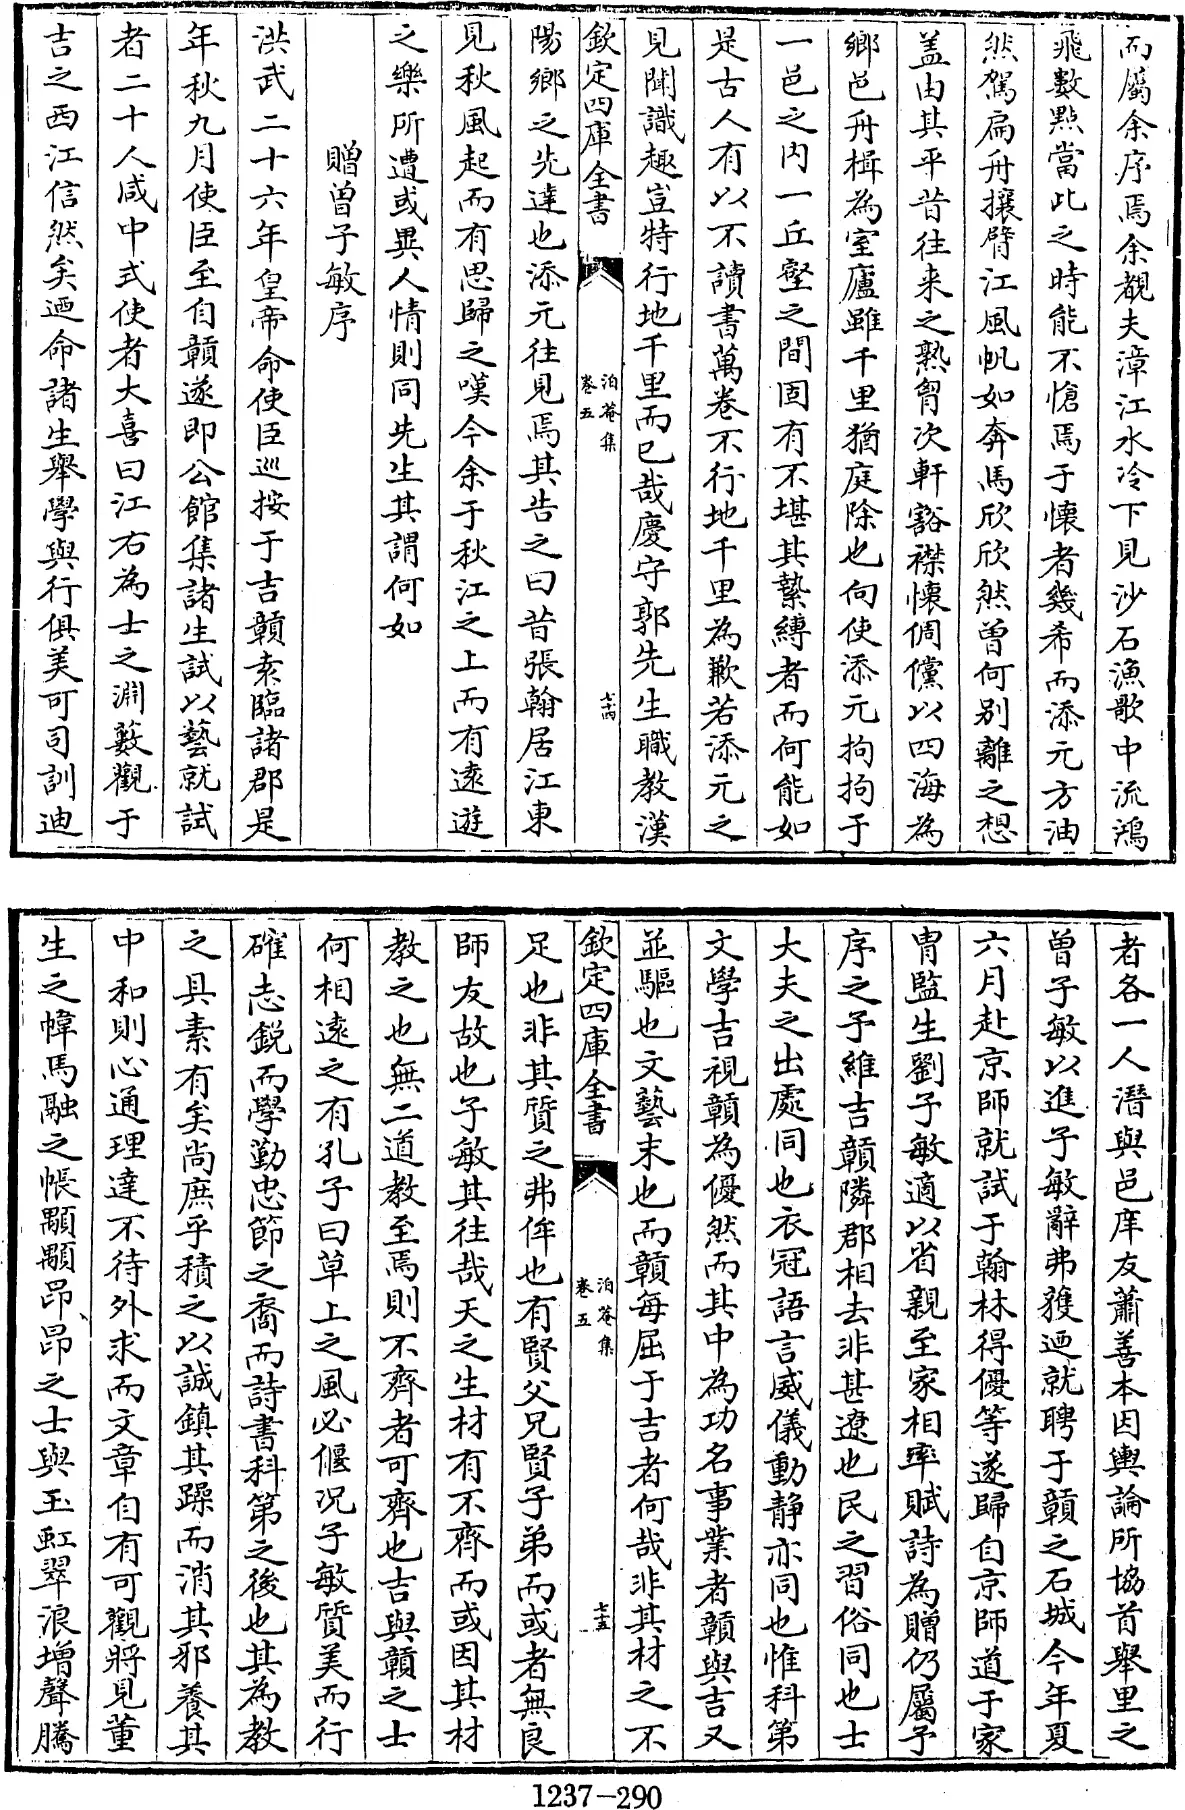 而屬余序焉余覩夫漳江水冷下見沙石漁歌中流鴻
飛數點當此之時能不愴焉于懐者幾希而添元方油
然駕扁舟攘臂江風帆如奔馬欣欣然曽何别離之想
盖由其平昔往来之熟胷次軒豁襟懐倜儻以四海為
鄉邑舟楫為室廬雖千里猶庭除也向使添元拘拘于
一邑之内一丘壑之間固有不堪其縶縛者而何能如
是古人有以不讀書萬巻不行地千里為歉若添元之
見聞識趣豈特行地千里而已哉慶守郭先生職教漢
欽定四庫全書
泊菴集
巻五
七十四
陽鄉之先達也添元往見焉其告之曰昔張翰居江東
見秋風起而有思歸之嘆今余于秋江之上而有逺遊
之樂所遭或異人情則同先生其謂何如
贈曽子敏序
洪武二十六年皇帝命使臣巡按于吉贛袁臨諸郡是
年秋九月使臣至自贛遂即公館集諸生試以藝就試
者二十人咸中式使者大喜曰江右為士之淵藪觀于
吉之西江信然矣廼命諸生舉學與行俱美可司訓迪
者各一人潛與邑庠友蕭善本因輿論所協首舉里之
曽子敏以進子敏辭弗獲廼就聘于贛之石城今年夏
六月赴京師就試于翰林得優等遂歸自京師道于家
胄監生劉子敏適以省親至家相率賦詩為贈仍屬予
序之予維吉贛隣郡相去非甚遼也民之習俗同也士
大夫之出處同也衣冠語言威儀動静亦同也惟科第
文學吉視贛為優然而其中為功名事業者贛與吉又
並驅也文藝末也而贛每屈于吉者何哉非其材之不
欽定四庫全書
泊菴集
巻五
七十五
足也非其質之弗侔也有賢父兄賢子弟而或者無良
師友故也子敏其往哉天之生材有不齊而或因其材
教之也無二道教至焉則不齊者可齊也吉與贛之士
何相逺之有孔子曰草上之風必偃况子敏質美而行
確志鋭而學勤忠節之裔而詩書科第之後也其為教
之具素有矣尚庶乎積之以誠鎮其躁而消其邪養其
中和則心通理達不待外求而文章自有可觀將見董
生之幃馬融之帳顒顒昂昂之士與玉虹翠浪增聲騰
1237-290